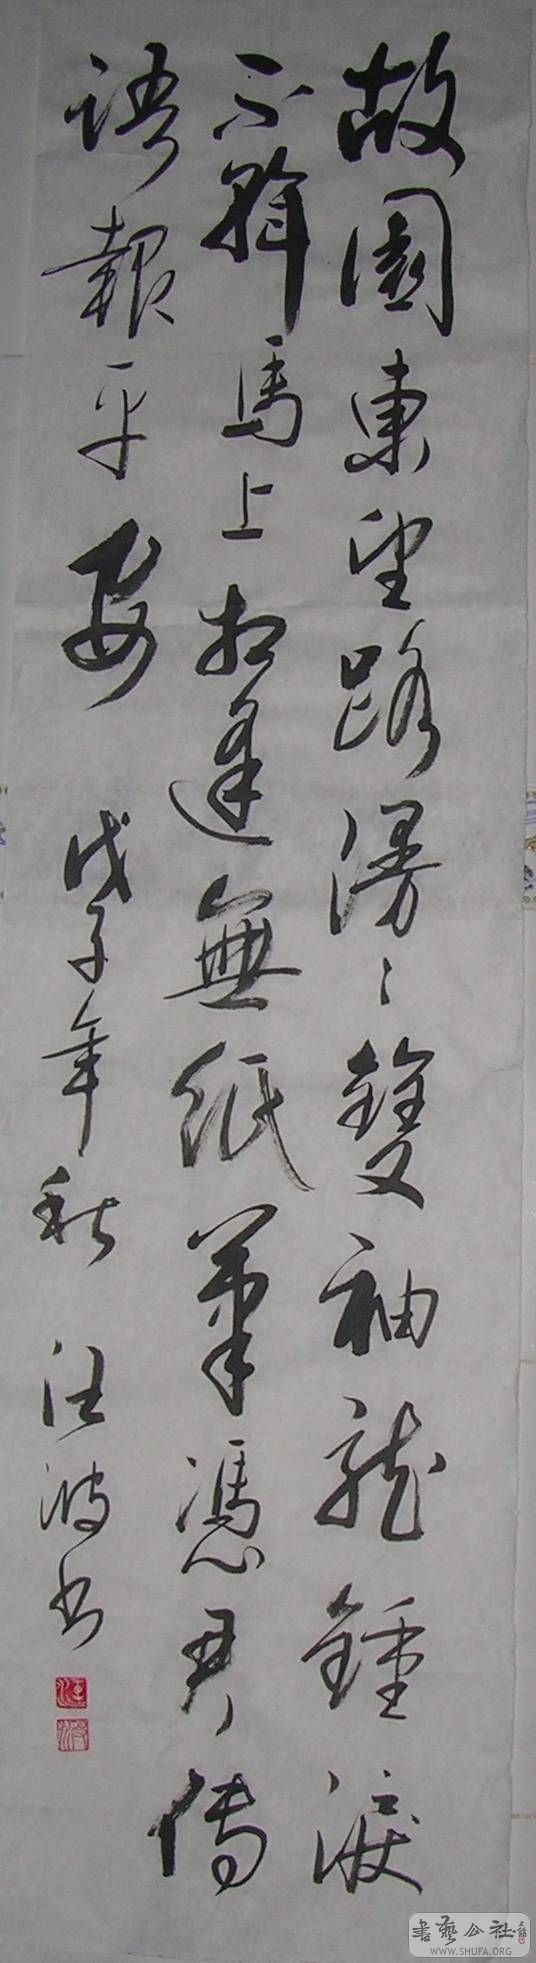 故園東望路漫〻雙袖龍鍾淚
不乾馬上相逢無紙筆憑君傳
語報平安 戊子年秋 汪波书
書藝公社
WWW.SHUFA.ORG